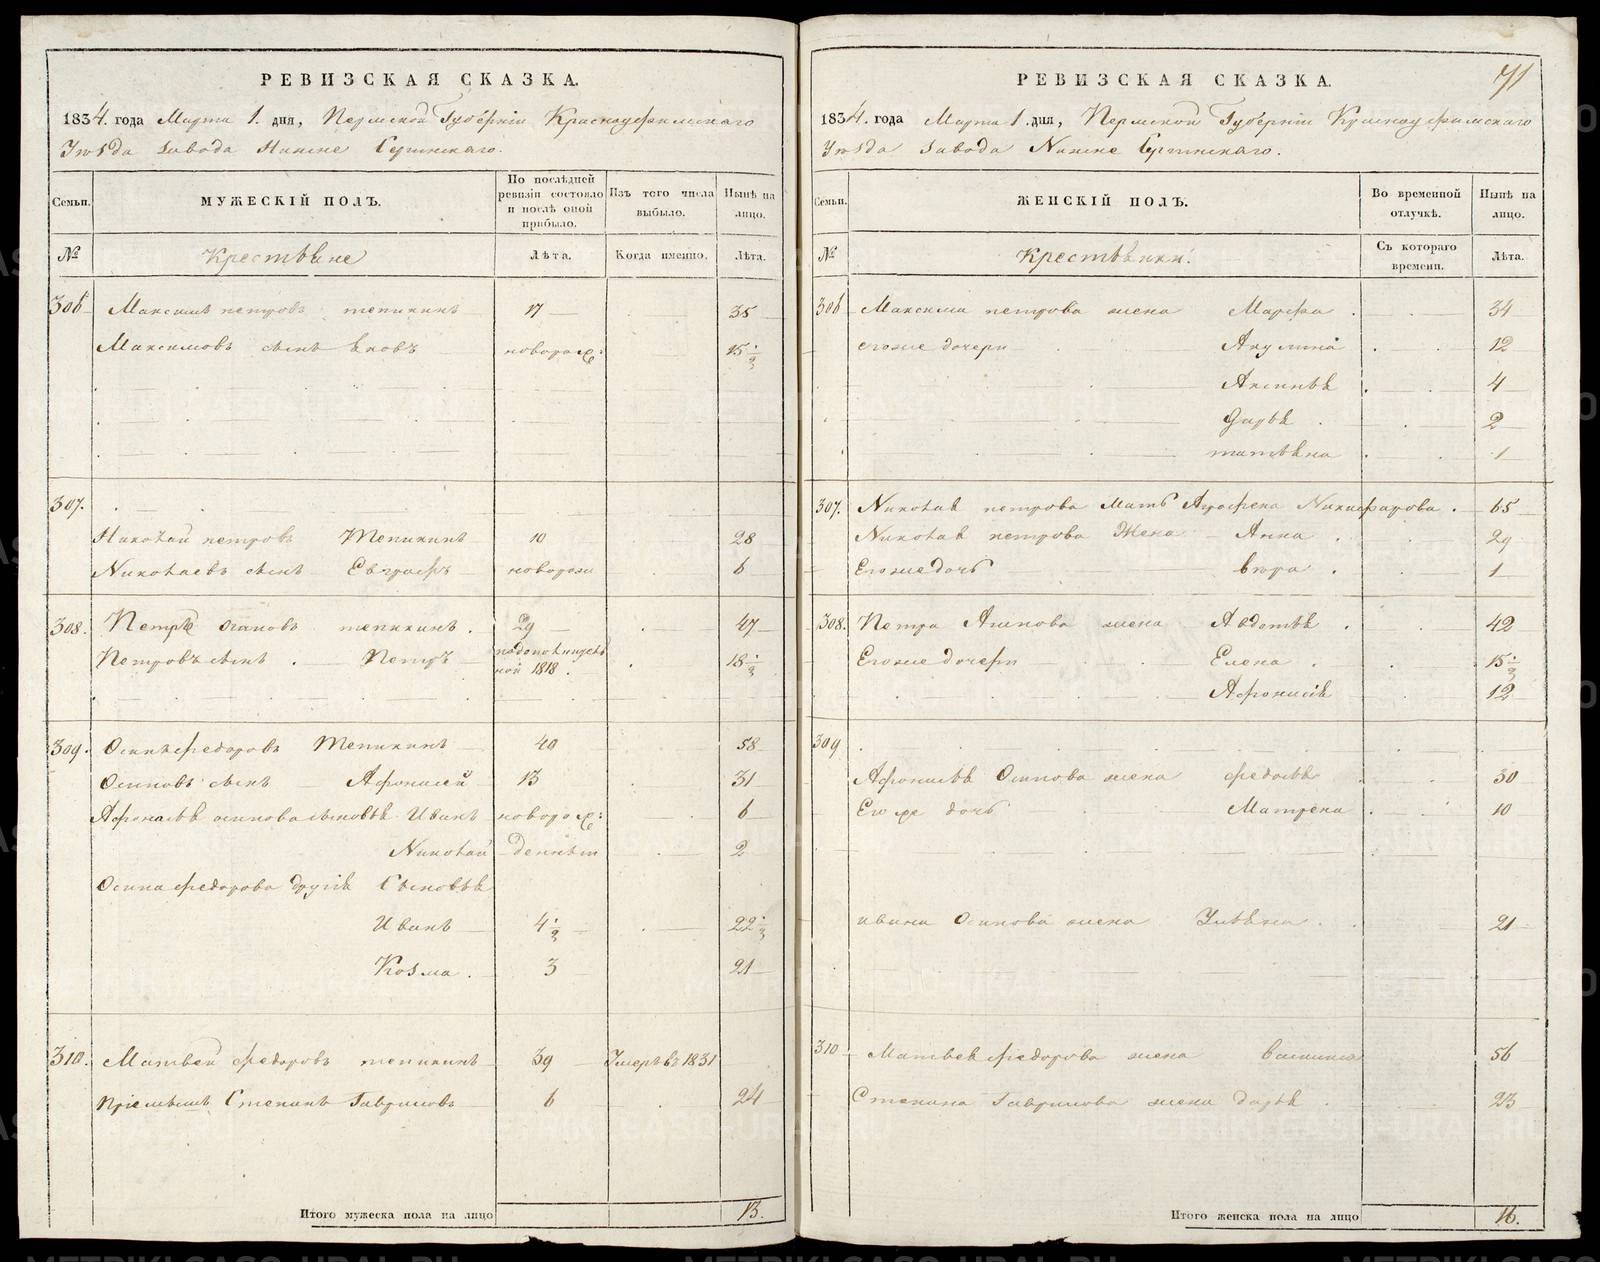 РЕВИЗСКАЯ СКАЗКА.
1834. года Марта 1. дня, Пермской Губерніи Красноуфимскаго
Уѣзда Завода Нижне Сергинскаго.
Семьи.
МУЖЕСКІЙ ПОЛЪ.
По послѣдней ревизіи состояло и послѣ оной прибыло.
Изъ того числа выбыло.
Нынѣ на лицо.
№
Крестьяне
Лѣта.
Когда именно.
Лѣта.
306 Максимъ петровъ тепикинъ 17 35
Максимовъ сынъ новорож: 15 1/2
307.
Николай петровъ Тепикинъ 10 28
Николаевъ сынъ Евграфъ новорож 6
308. Петръ тепикинъ. 29 47
Петровъ сынъ. Петръ 1818. 18 1/2
309. Осипъ федоровъ Тепикинъ 40 58
Осиповъ сынъ Афонасей 13 31
Афонасья осипова сыновья Иванъ новорож: 6
Николай 2
Осипа федорова другія Сыновья
Иванъ 4 1/2 22 1/2
Козма. 3 21
310. Матвей федоровъ тепикинъ 39 Умеръ въ 1831
Пріемышъ Степанъ Гавриловъ 6 24
Итого мужеска пола на лицо 13.
71
РЕВИЗСКАЯ СКАЗКА.
1834. года Марта 1. дня, Пермской Губерніи Красноуфимскаго
Уѣзда Завода Нижне Сергинскаго.
Семьи.
ЖЕНСКІЙ ПОЛЪ.
Во временной отлучкѣ.
Нынѣ на лицо.
№
Крестьянки.
Съ котораго времени.
Лѣта.
306 Максима петрова жена Марфа. 34
егоже дочери Акулина 12
Аксинья 4
Дарья 2
татьяна 1
307. Николая петрова мать Никифорова. 65
Николая петрова Жена Анна. 29
Егоже дочь вера. 1
308. Петра жена Авдотья. 42
Егоже дочери Елена. 15 1/2
Афонасія 12
309
Афонасья Осипова жена федосья 30
Его же дочь Матрена 10
ивана Осипова жена Ульяна. 21
310 Матвея федорова жена 56
Степана Гаврилова жена дарья 23
Итого женска пола на лицо 16.
METRIKI.GASO-URAL.RU